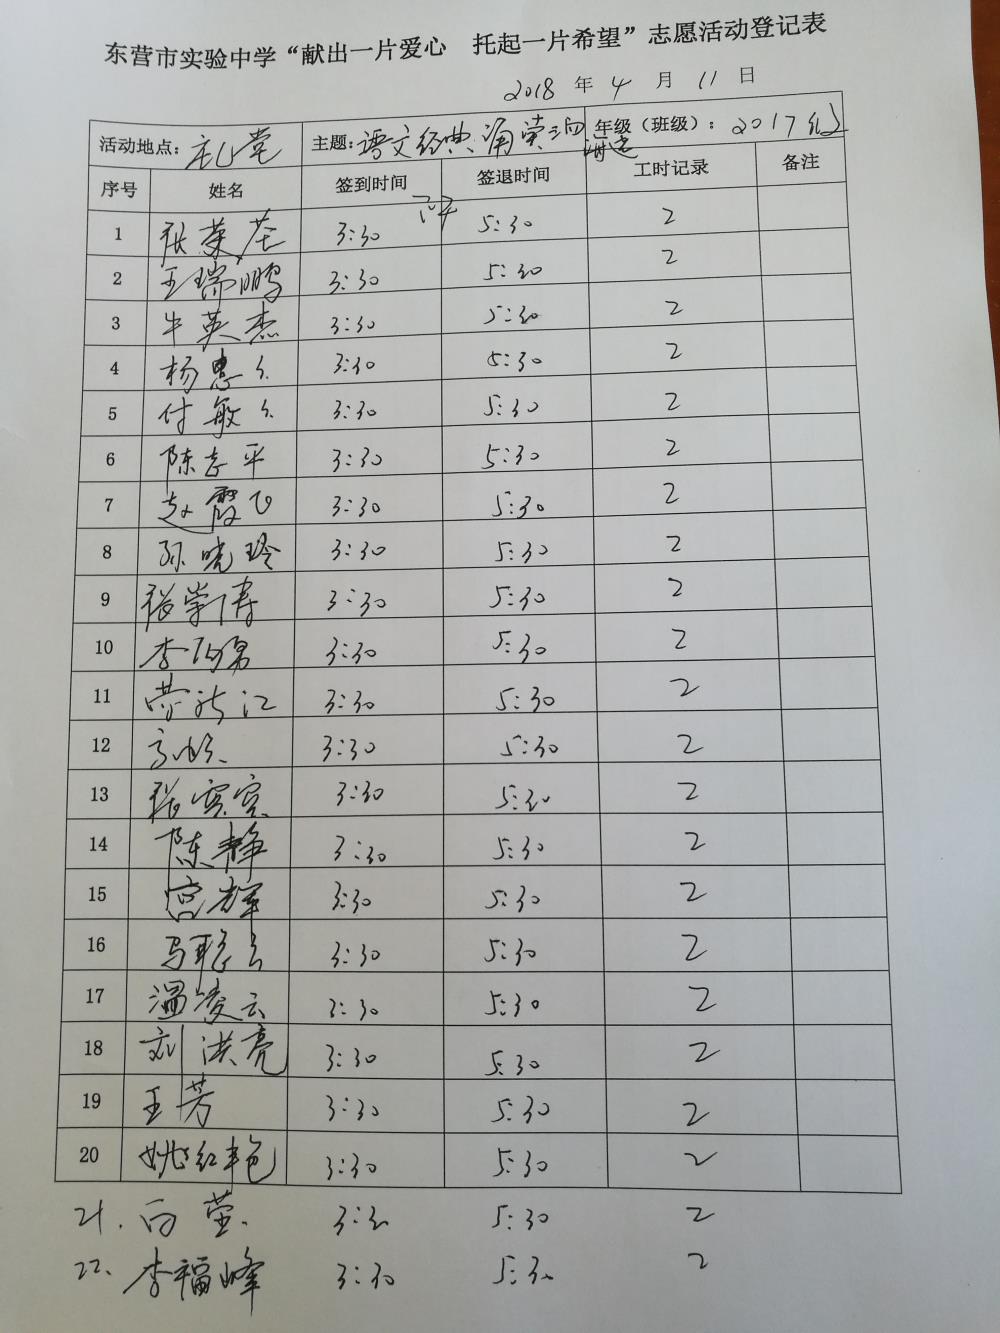 东营市实验中学“献出一片爱心 托起一片希望”志愿活动登记表
2018 年 4 月 11 日
活动地点：礼堂 主题：语文经典诵 年级（班级）：2017级
序号 姓名 签到时间 签退时间 工时记录 备注
1 张 3:30 5:30 2
2 王瑞鹏 3:30 5:30 2
3 牛英杰 3:30 5:30 2
4 杨惠 3:30 5:30 2
5 付敏 3:30 5:30 2
6 陈志平 3:30 5:30 2
7 赵霞飞 3:30 5:30 2
8 孙晓玲 3:30 5:30 2
9 张学涛 3:30 5:30 2
10 李 3:30 5:30 2
11 江 3:30 5:30 2
12 高 3:30 5:30 2
13 张宾宾 3:30 5:30 2
14 陈静 3:30 5:30 2
15 宫辉 3:30 5:30 2
16 马聪 3:30 5:30 2
17 温凌云 3:30 5:30 2
18 刘洪亮 3:30 5:30 2
19 王芳 3:30 5:30 2
20 姚红艳 3:30 5:30 2
21. 白莹 3:30 5:30 2
22. 李福峰 3:30 5:30 2